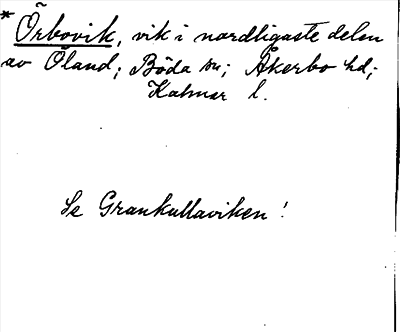 *Örbovik, vik i nordligaste delen
av Öland; Böda sn; Åkerbo hd;
Kalmar l.
Se Grankullaviken!